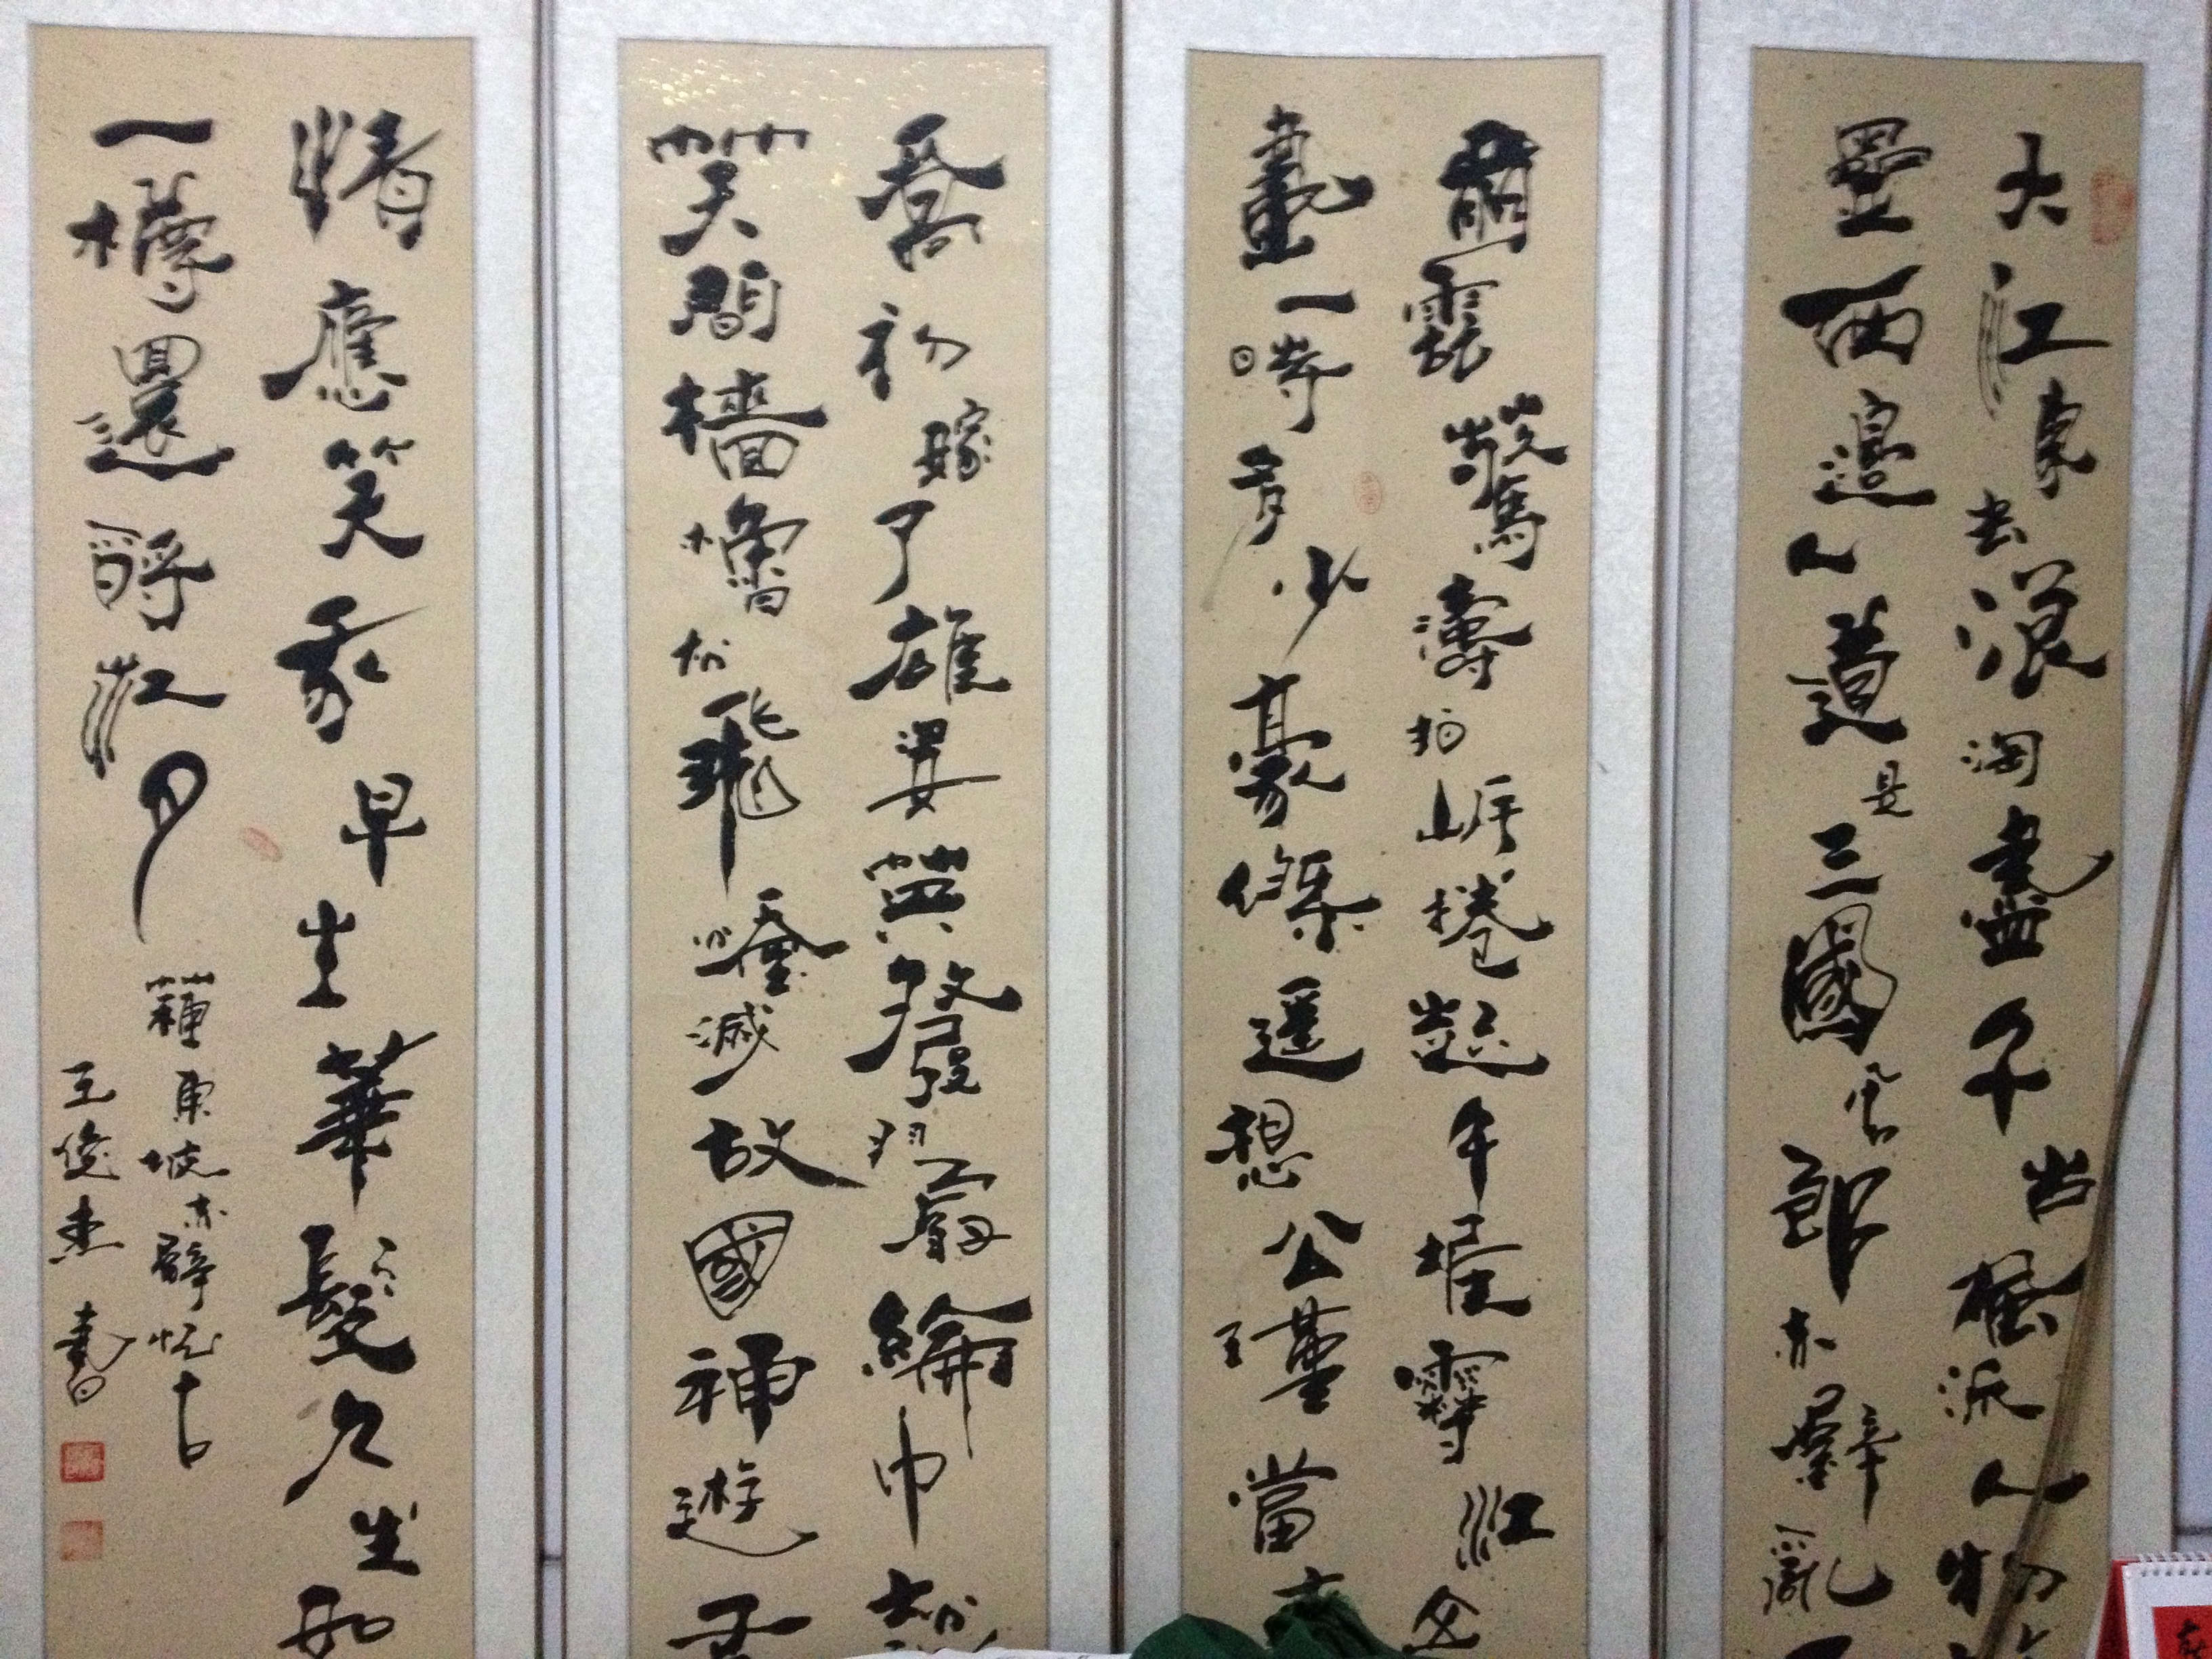 大江東去浪淘盡千古風流人物
壘西邊人道是三國周郎赤壁亂
崩雲驚濤拍岸捲起千堆雪江
畫一時多少豪傑遙想公瑾當
喬初嫁了雄姿英發羽扇綸巾
笑間檣櫓灰飛煙滅故國神遊
情應笑我早生華髮人生如
一樽還酹江月
蘇東坡赤壁懷古
王俊杰書